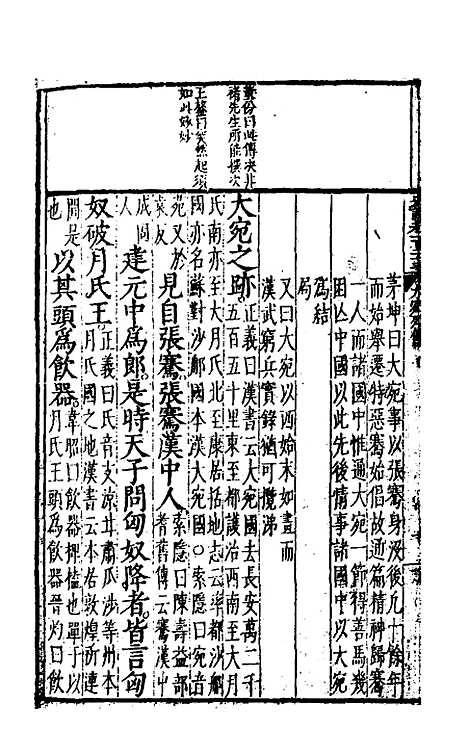 董份曰此傳決非
褚先生所能撰次
王鏊曰突然起頭
如此敘妙
茅坤曰大宛事以張騫身沒後凡十餘年
而始舉遷特惡騫始倡故通篇精神歸騫
一人而諸國中惟遍大宛一節獨得善馬幾
困亡中國以此先後情事諸國中以大宛
為結
局
又曰大宛以西始末如畫而
漢武窮兵實錄猶可攬涕
大宛之跡正義曰漢書云大宛國去長安萬二千
五百五十里東至都護治西南至大月
氏南亦至大月氏北至康居括地志云率都沙那
國亦名蘇對沙那國本漢大宛國○索隱曰宛音
菀又於
袁反見自張騫張騫漢中人索隱曰陳壽益部
耆舊傳云騫漢中
成固
人建元中為郎是時天子問匈奴降者皆言匈
奴破月氏王正義曰氏音支涼甘肅瓜沙等州本
月氏國之地漢書云本居敦煌祁連
間是
也以其頭為飲器韋昭曰飲器椑榼也單于以
月氏王頭為飲器晉灼曰飲